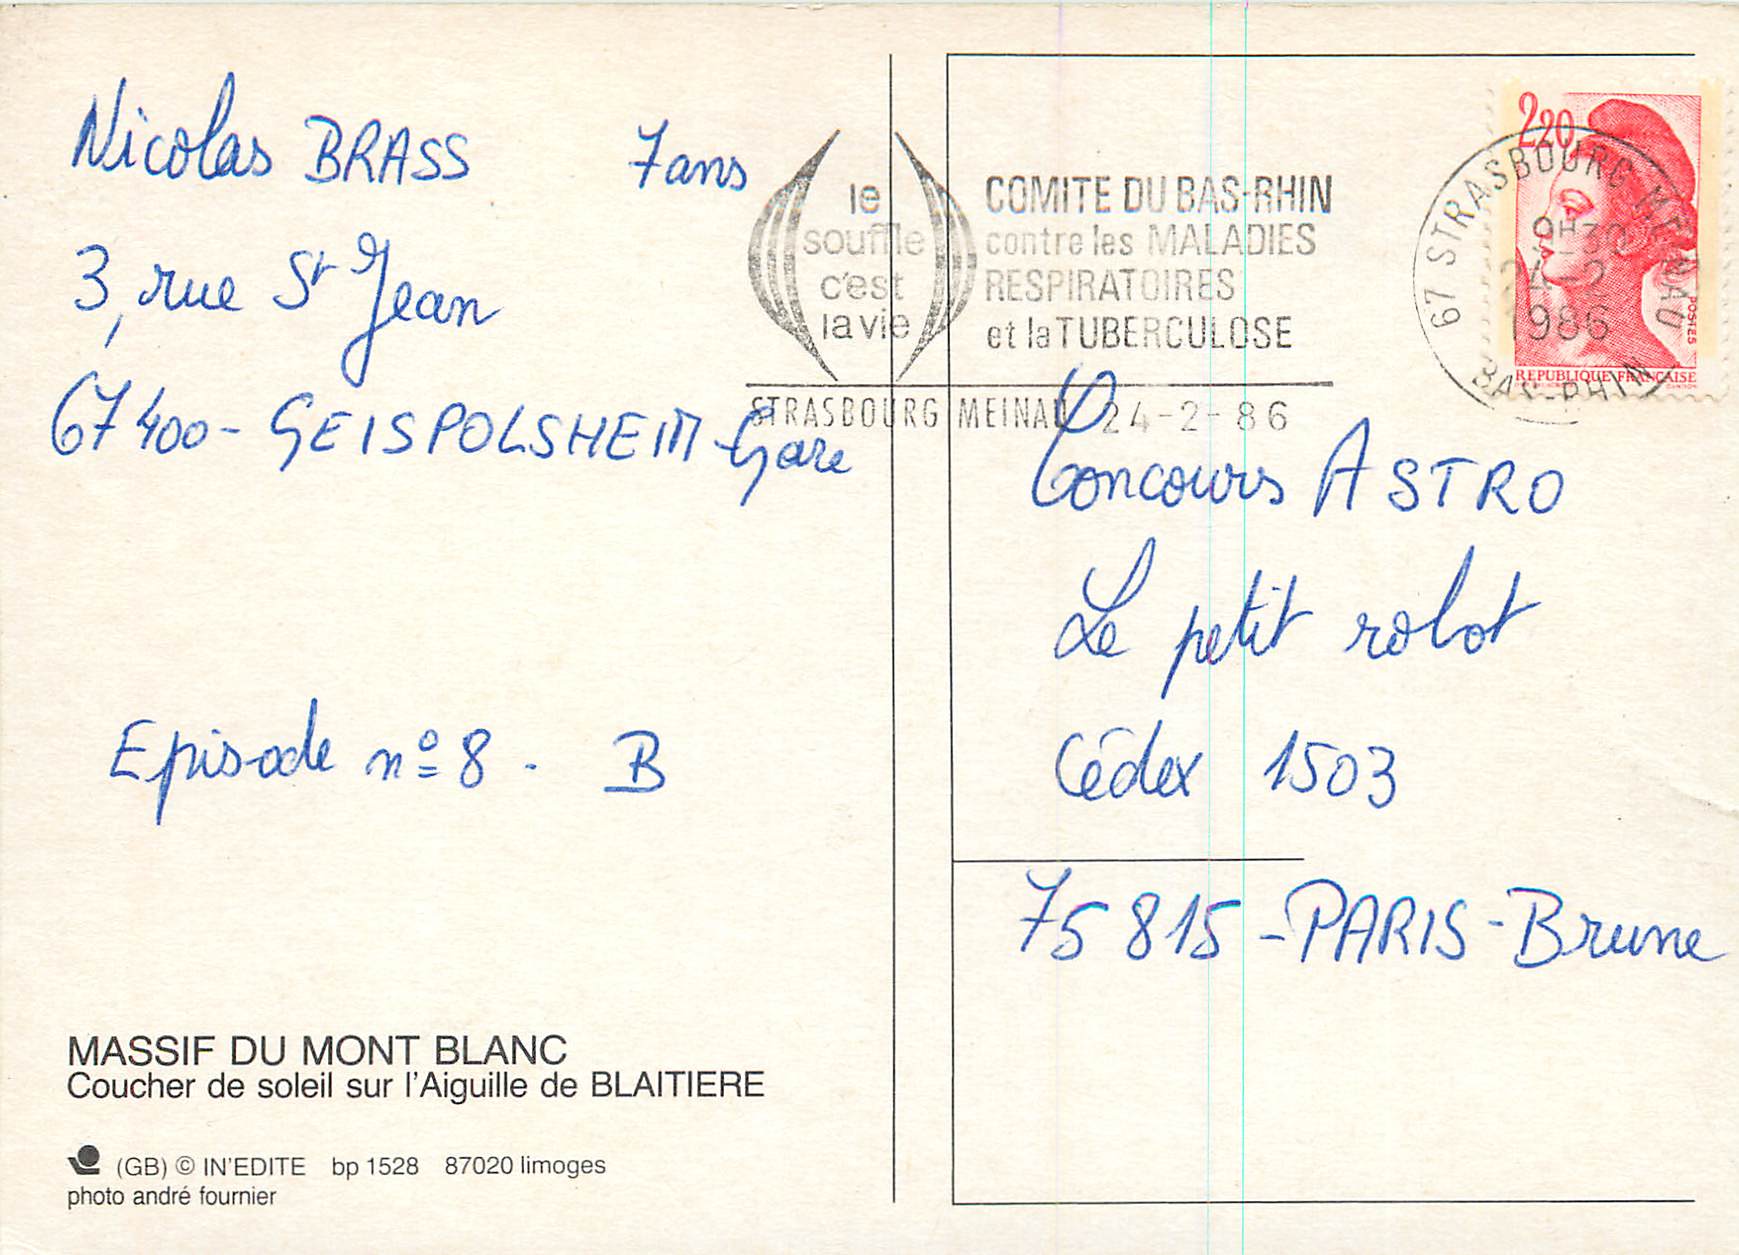 Nicolas BRASS 7ans
3, rue St Jean
67400 - GEISPOLSHEIM - Gare
Episode nº 8 - B
MASSIF DU MONT BLANC
Coucher de soleil sur l'Aiguille de BLAITIERE
(GB) © IN'EDITE bp 1528 87020 limoges
photo andré fournier
le
souffle
c'est
la vie
COMITE DU BAS-RHIN
contre les MALADIES
RESPIRATOIRES
et la TUBERCULOSE
STRASBOURG MEINAU 24-2-86
2,20
POSTES
REPUBLIQUE FRANÇAISE
67 STRASBOURG MEINAU
9H30
24-2
1986
BAS-RHIN
Concours ASTRO
Le petit robot
Cédex 1503
75815 - PARIS - Brune